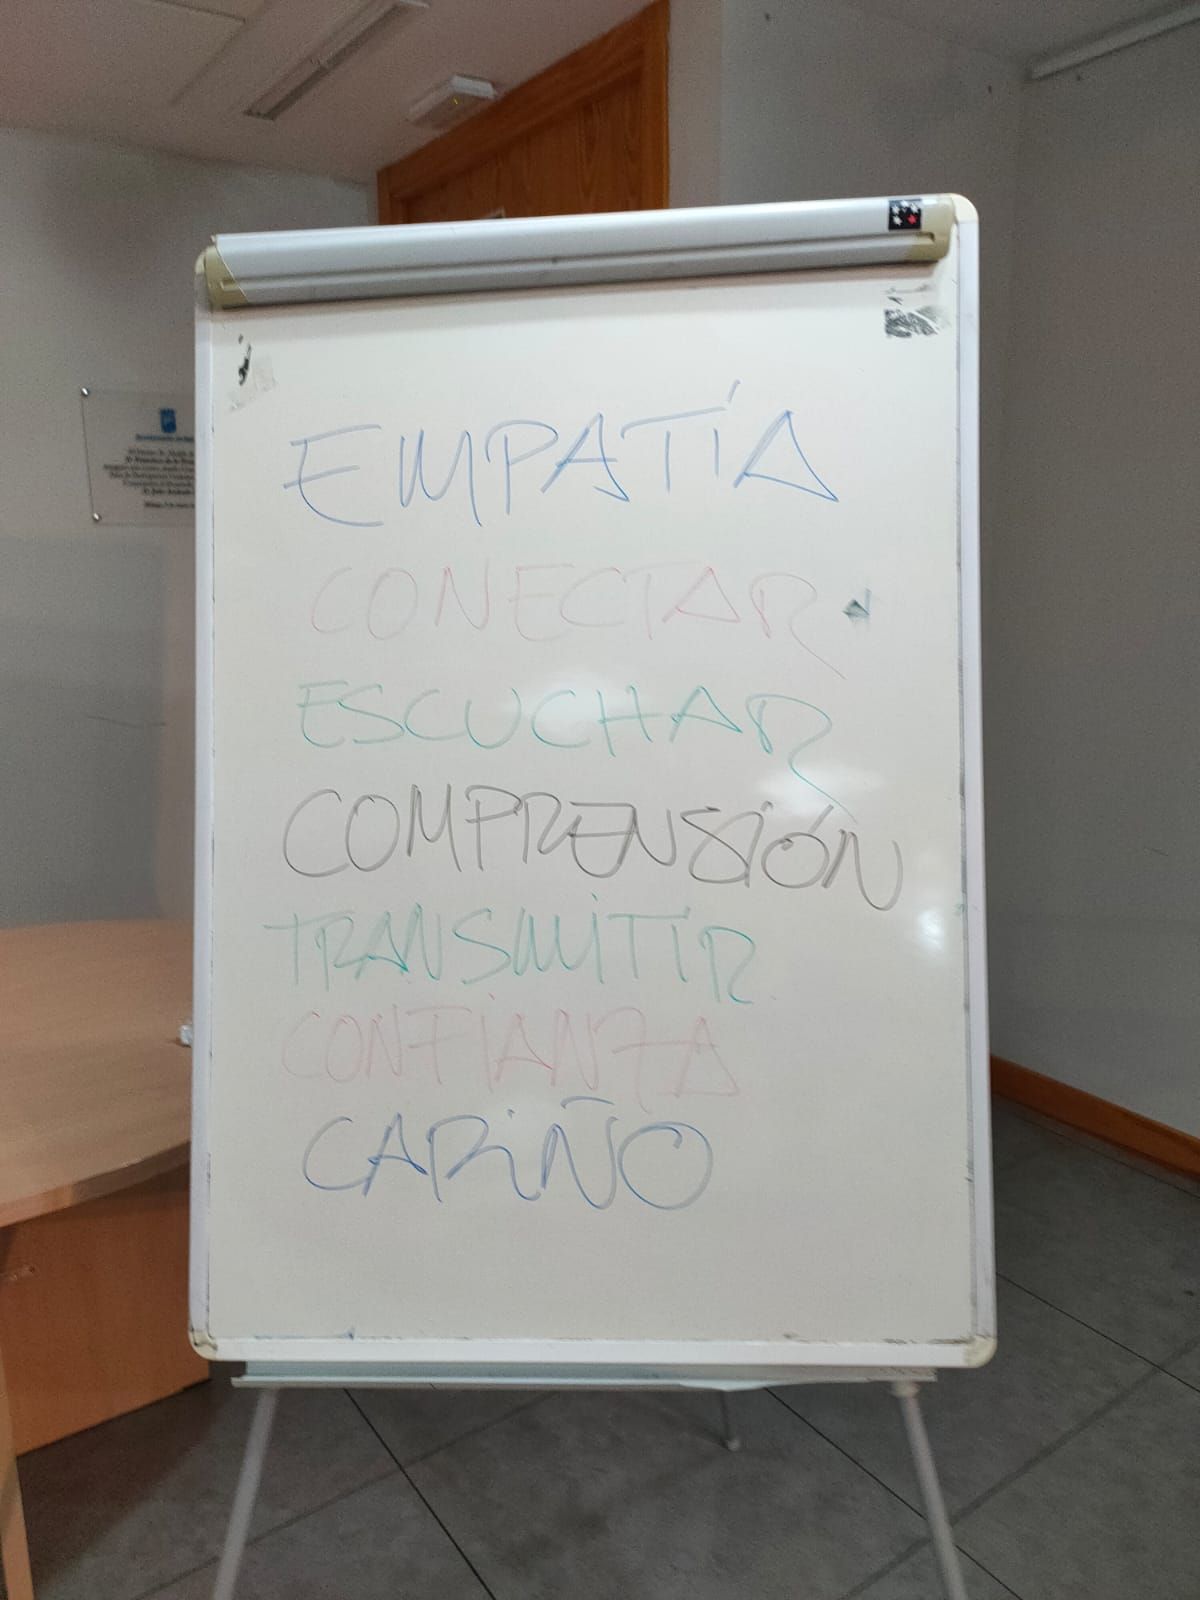 EMPATÍA
CONECTAR
ESCUCHAR
COMPRENSIÓN
TRANSMITIR
CONFIANZA
CARIÑO